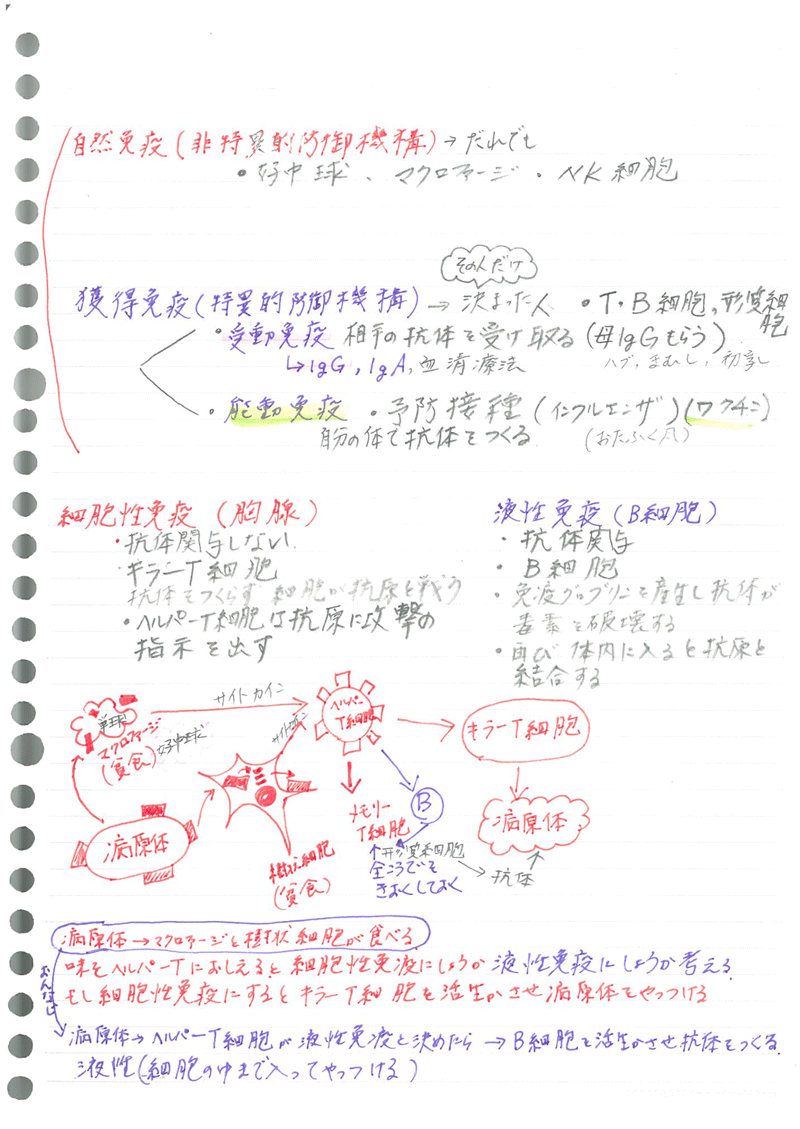 自然免疫(非特異的防御機構)→だれでも
・好中球、マクロファージ・NK細胞
その人だけ
獲得免疫(特異的防御機構)→決まった人 ・T・B細胞、形質細胞
・受動免疫 相手の抗体を受け取る(母IgGもらう)
↳IgG, IgA, 血清療法 ハブ, まむし, 初乳
・能動免疫 ・予防接種(インフルエンザ)(ワクチン)
自分の体で抗体をつくる (おたふく風)
細胞性免疫(胸腺)
・抗体関与しない
キラーT細胞
抗体をつくらず 細胞が抗原と戦う
・ヘルパーT細胞は抗原に攻撃の
指示を出す
液性免疫(B細胞)
・抗体関与
・B細胞
・免疫グロブリンを産生し抗体が
毒素を破壊する
・再び体内に入ると抗原と
結合する
サイトカイン
単球
マクロファージ 好中球
(貪食)
サイトカイン
ヘルパー
T細胞
キラーT細胞
病原体
樹状細胞
(貪食)
メモリー
T細胞
B
形質細胞
きおくしておく
→抗体
病原体
病原体→マクロファージと樹状細胞が食べる
味をヘルパーTにおしえると細胞性免疫にしようか液性免疫にしようか考える
もし細胞性免疫にするとキラーT細胞を活性かさせ病原体をやっつける
おんなじ
病原体→ヘルパーT細胞が液性免疫と決めたら→B細胞を活性かさせ抗体をつくる
液性(細胞の中まで入ってやっつける)